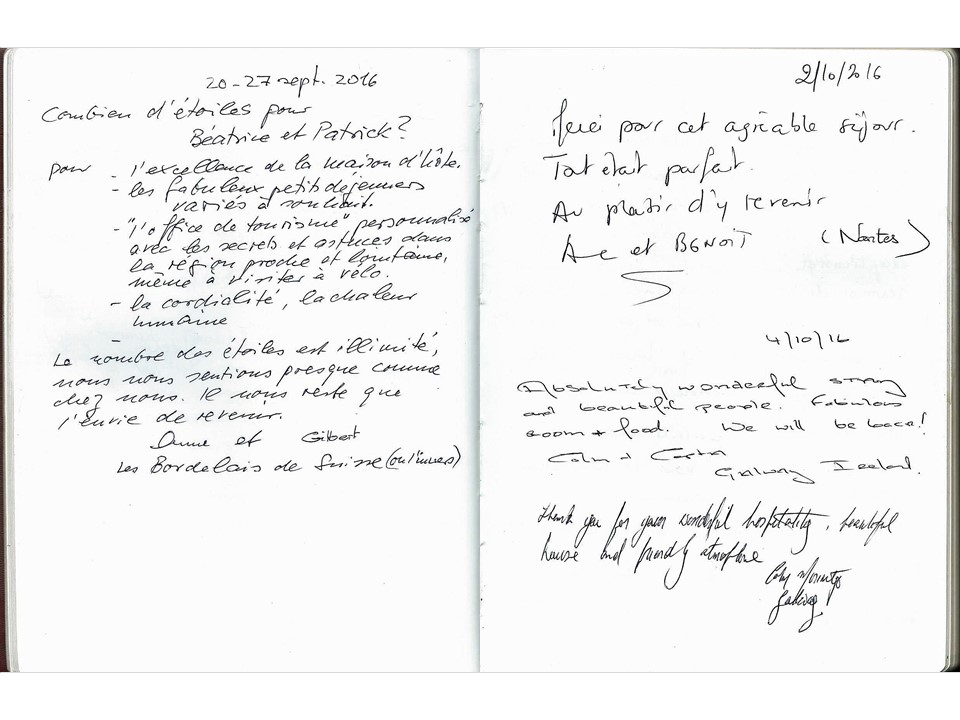 20-27 sept. 2016
Combien d'étoiles pour
Béatrice et Patrick?
pour - l'excellence de la maison d'hôte.
- les fabuleux petits déjeuners
variés à souhait.
- "l'office de tourisme" personnalisé
avec les secrets et astuces dans
la région proche et lointaine,
même à visiter à vélo.
- la cordialité, la chaleur
humaine
Le nombre des étoiles est illimité,
nous nous sentions presque comme
chez nous. Il nous reste que
l'envie de revenir.
et Gilbert
Les Bordelais de Suisse (ou l'invers)
2/10/2016
Merci pour cet agréable séjour.
Tout était parfait.
Au plaisir d'y revenir
et BENOIT (Nantes)
4/10/16
Absolutely wonderful
and beautiful people. Fabulous
room + food. We will be back!
Galway Ireland.
Thank you for your wonderful hospitality, beautiful
house and friendly atmosphere
Galway!